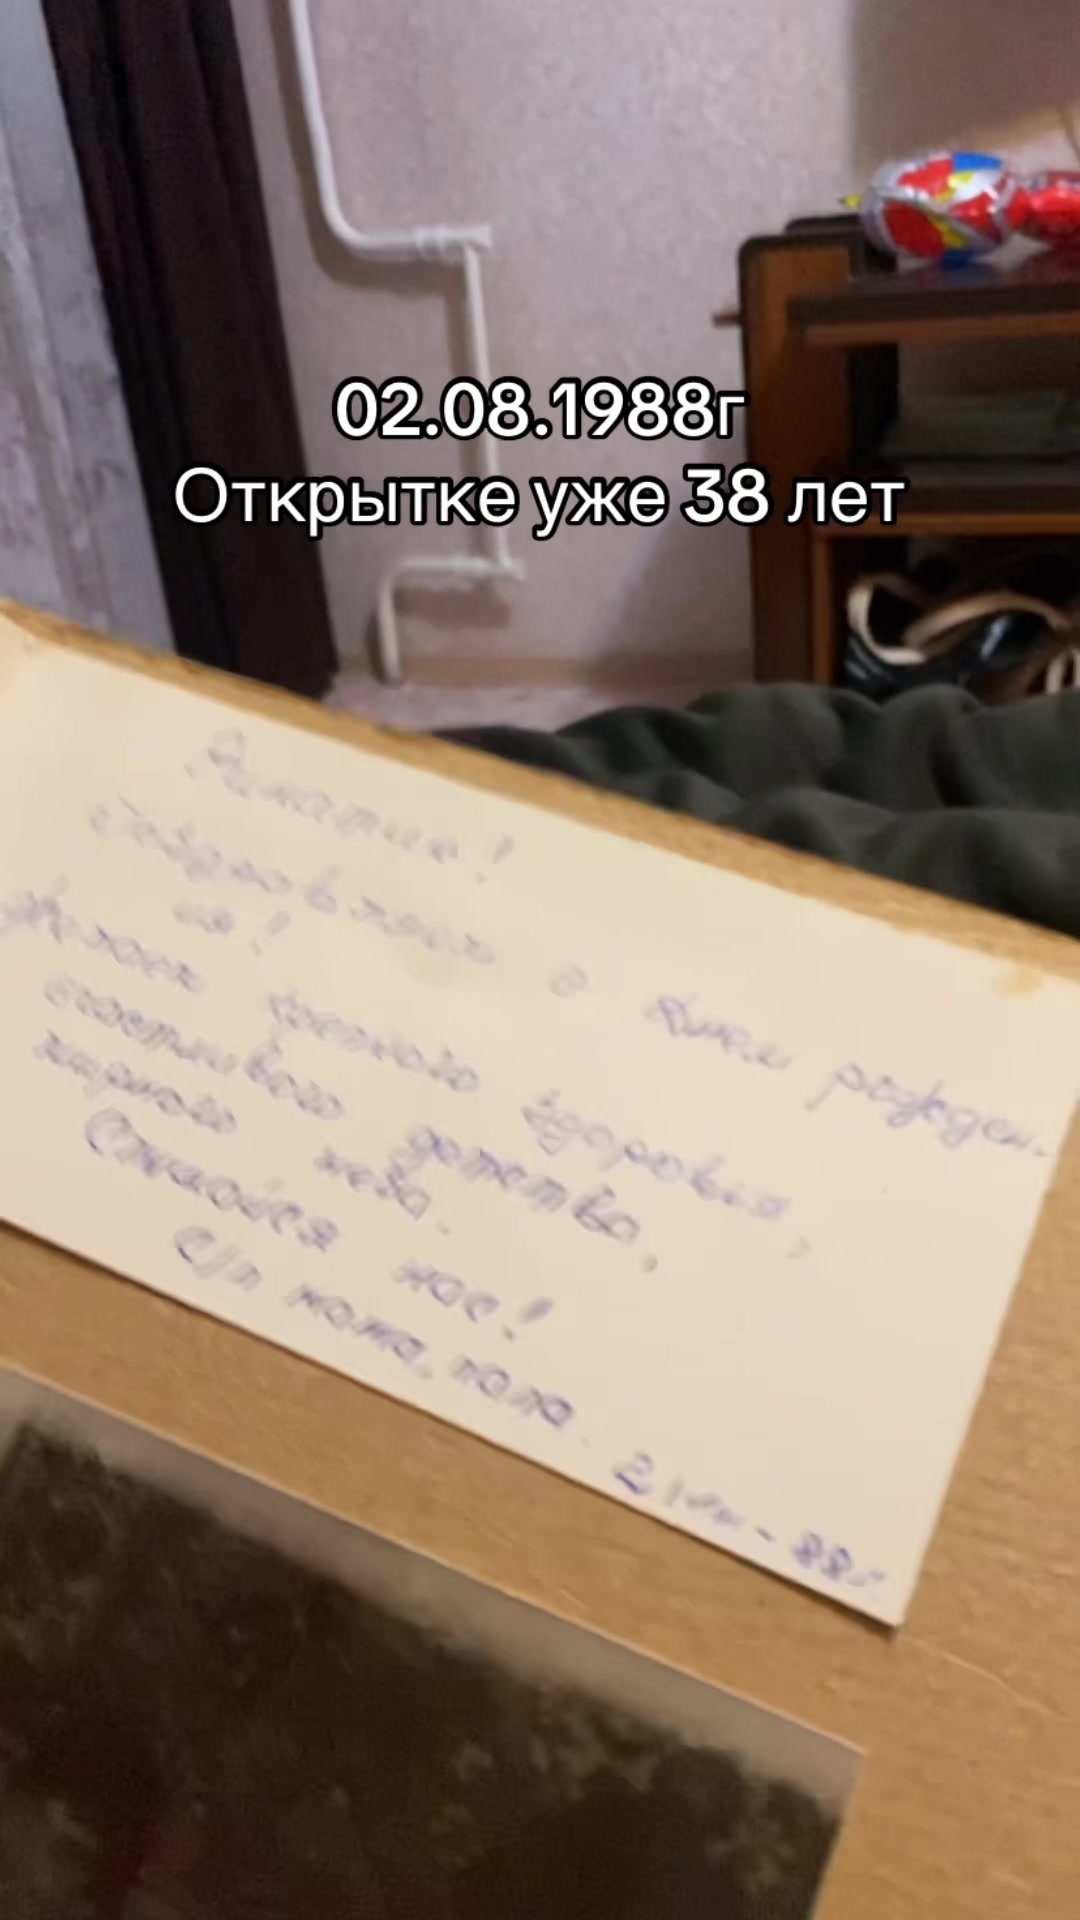 02.08.1988г
Открытке уже 38 лет
Ринатик!
Поздравляем с Днем рожден.
ия!
Желаем крепкого здоровья,
счастливого детства,
мирного неба.
Слушайся нас!
С/п мама, папа.
2 VIII - 88г